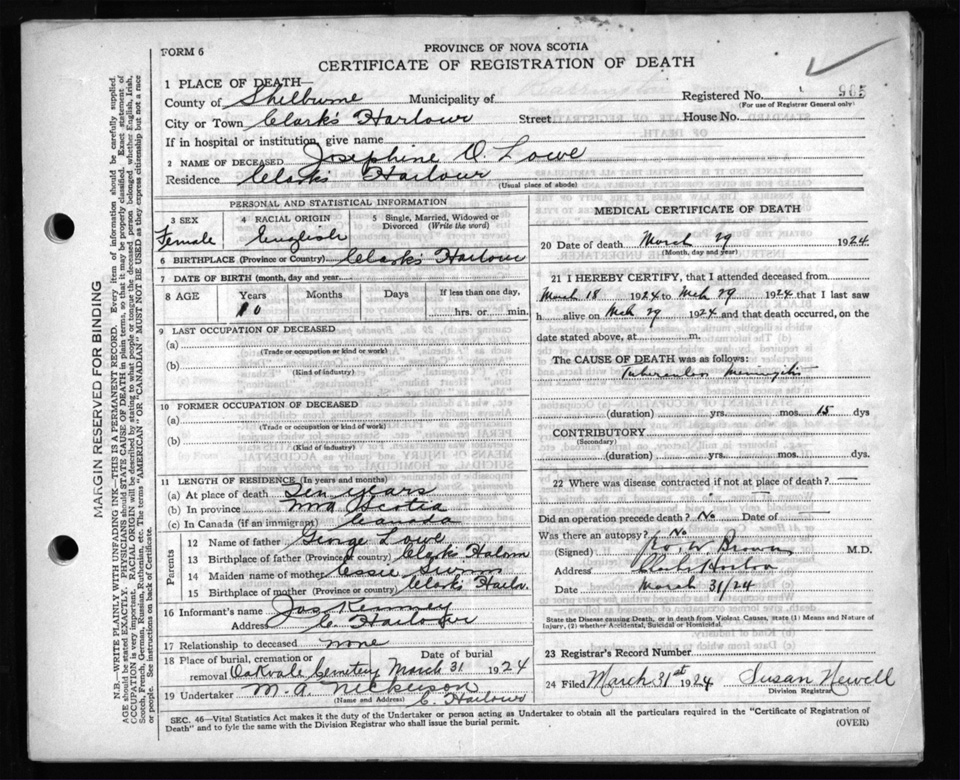 FORM 6
PROVINCE OF NOVA SCOTIA
CERTIFICATE OF REGISTRATION OF DEATH
1 PLACE OF DEATH—
County of Shelburne Municipality of
Registered No. 965
(For use of Registrar General only)
City or Town Clark's Harbour Street House No.
If in hospital or institution, give name
2 NAME OF DECEASED Josephine O. Lowe
Residence Clark's Harbour
(Usual place of abode)
PERSONAL AND STATISTICAL INFORMATION
3 SEX 4 RACIAL ORIGIN 5 Single, Married, Widowed or Divorced (Write the word)
Female English
6 BIRTHPLACE (Province or Country) Clark's Harbour
7 DATE OF BIRTH (month, day and year)
8 AGE Years Months Days If less than one day,
10 hrs. or min.
9 LAST OCCUPATION OF DECEASED
(a)
(Trade or occupation or kind or work)
(b)
(Kind of industry)
10 FORMER OCCUPATION OF DECEASED
(a)
(Trade or occupation or kind of work)
(b)
(Kind of industry)
11 LENGTH OF RESIDENCE (In years and months)
(a) At place of death Ten Years
(b) In province Nova Scotia
(c) In Canada (if an immigrant) Canada
Parents
12 Name of father George Lowe
13 Birthplace of father (Province or country) Clark's Harbour
14 Maiden name of mother Essie Swim
15 Birthplace of mother (Province or country) Clark's Harbr.
16 Informant's name Jas Kenney
Address C. Harbour
17 Relationship to deceased none
18 Place of burial, cremation or removal Date of burial
Oakvale Cemetery March 31 1924
19 Undertaker M. A. Nickerson
(Name and Address) C. Harbour
MEDICAL CERTIFICATE OF DEATH
20 Date of death March 29 1924
(Month, day and year)
21 I HEREBY CERTIFY, that I attended deceased from
March 18 1924 to Mch 29 1924 that I last saw
h alive on Mch 29 1924 and that death occurred, on the
date stated above, at m.
The CAUSE OF DEATH was as follows:
Tubercular Meningitis
(duration) yrs. mos. 15 dys
CONTRIBUTORY
(Secondary)
(duration) yrs. mos. dys
22 Where was disease contracted if not at place of death? —
Did an operation precede death? No Date of —
Was there an autopsy? No
(Signed) W. Brown M.D.
Address Clarks Harbor
Date March 31/24
State the Disease causing Death, or in death from Violent Causes, state (1) Means and Nature of
Injury, (2) whether Accidental, Suicidal or Homicidal.
23 Registrar's Record Number
24 Filed March 31st 1924 Susan Newell
Division Registrar
SEC. 46—Vital Statistics Act makes it the duty of the Undertaker or person acting as Undertaker to obtain all the particulars required in the "Certificate of Registration of
Death" and to fyle the same with the Division Registrar who shall issue the burial permit.
(OVER)
MARGIN RESERVED FOR BINDING
N.B.—WRITE PLAINLY WITH UNFADING INK—THIS IS A PERMANENT RECORD. Every item of information should be carefully supplied.
AGE should be stated EXACTLY. PHYSICIANS should STATE CAUSE OF DEATH in plain terms, so that it may be properly classified. Exact statement of
OCCUPATION is very important. RACIAL ORIGIN will be described by stating to what people or tongue the deceased person, belonged whether English, Irish,
Scotch, French, German, Russian, Ruthenian, etc. The terms "AMERICAN" OR "CANADIAN" MUST NOT BE USED as they express citizenship but not a race
or people. See instructions on back of Certificate.